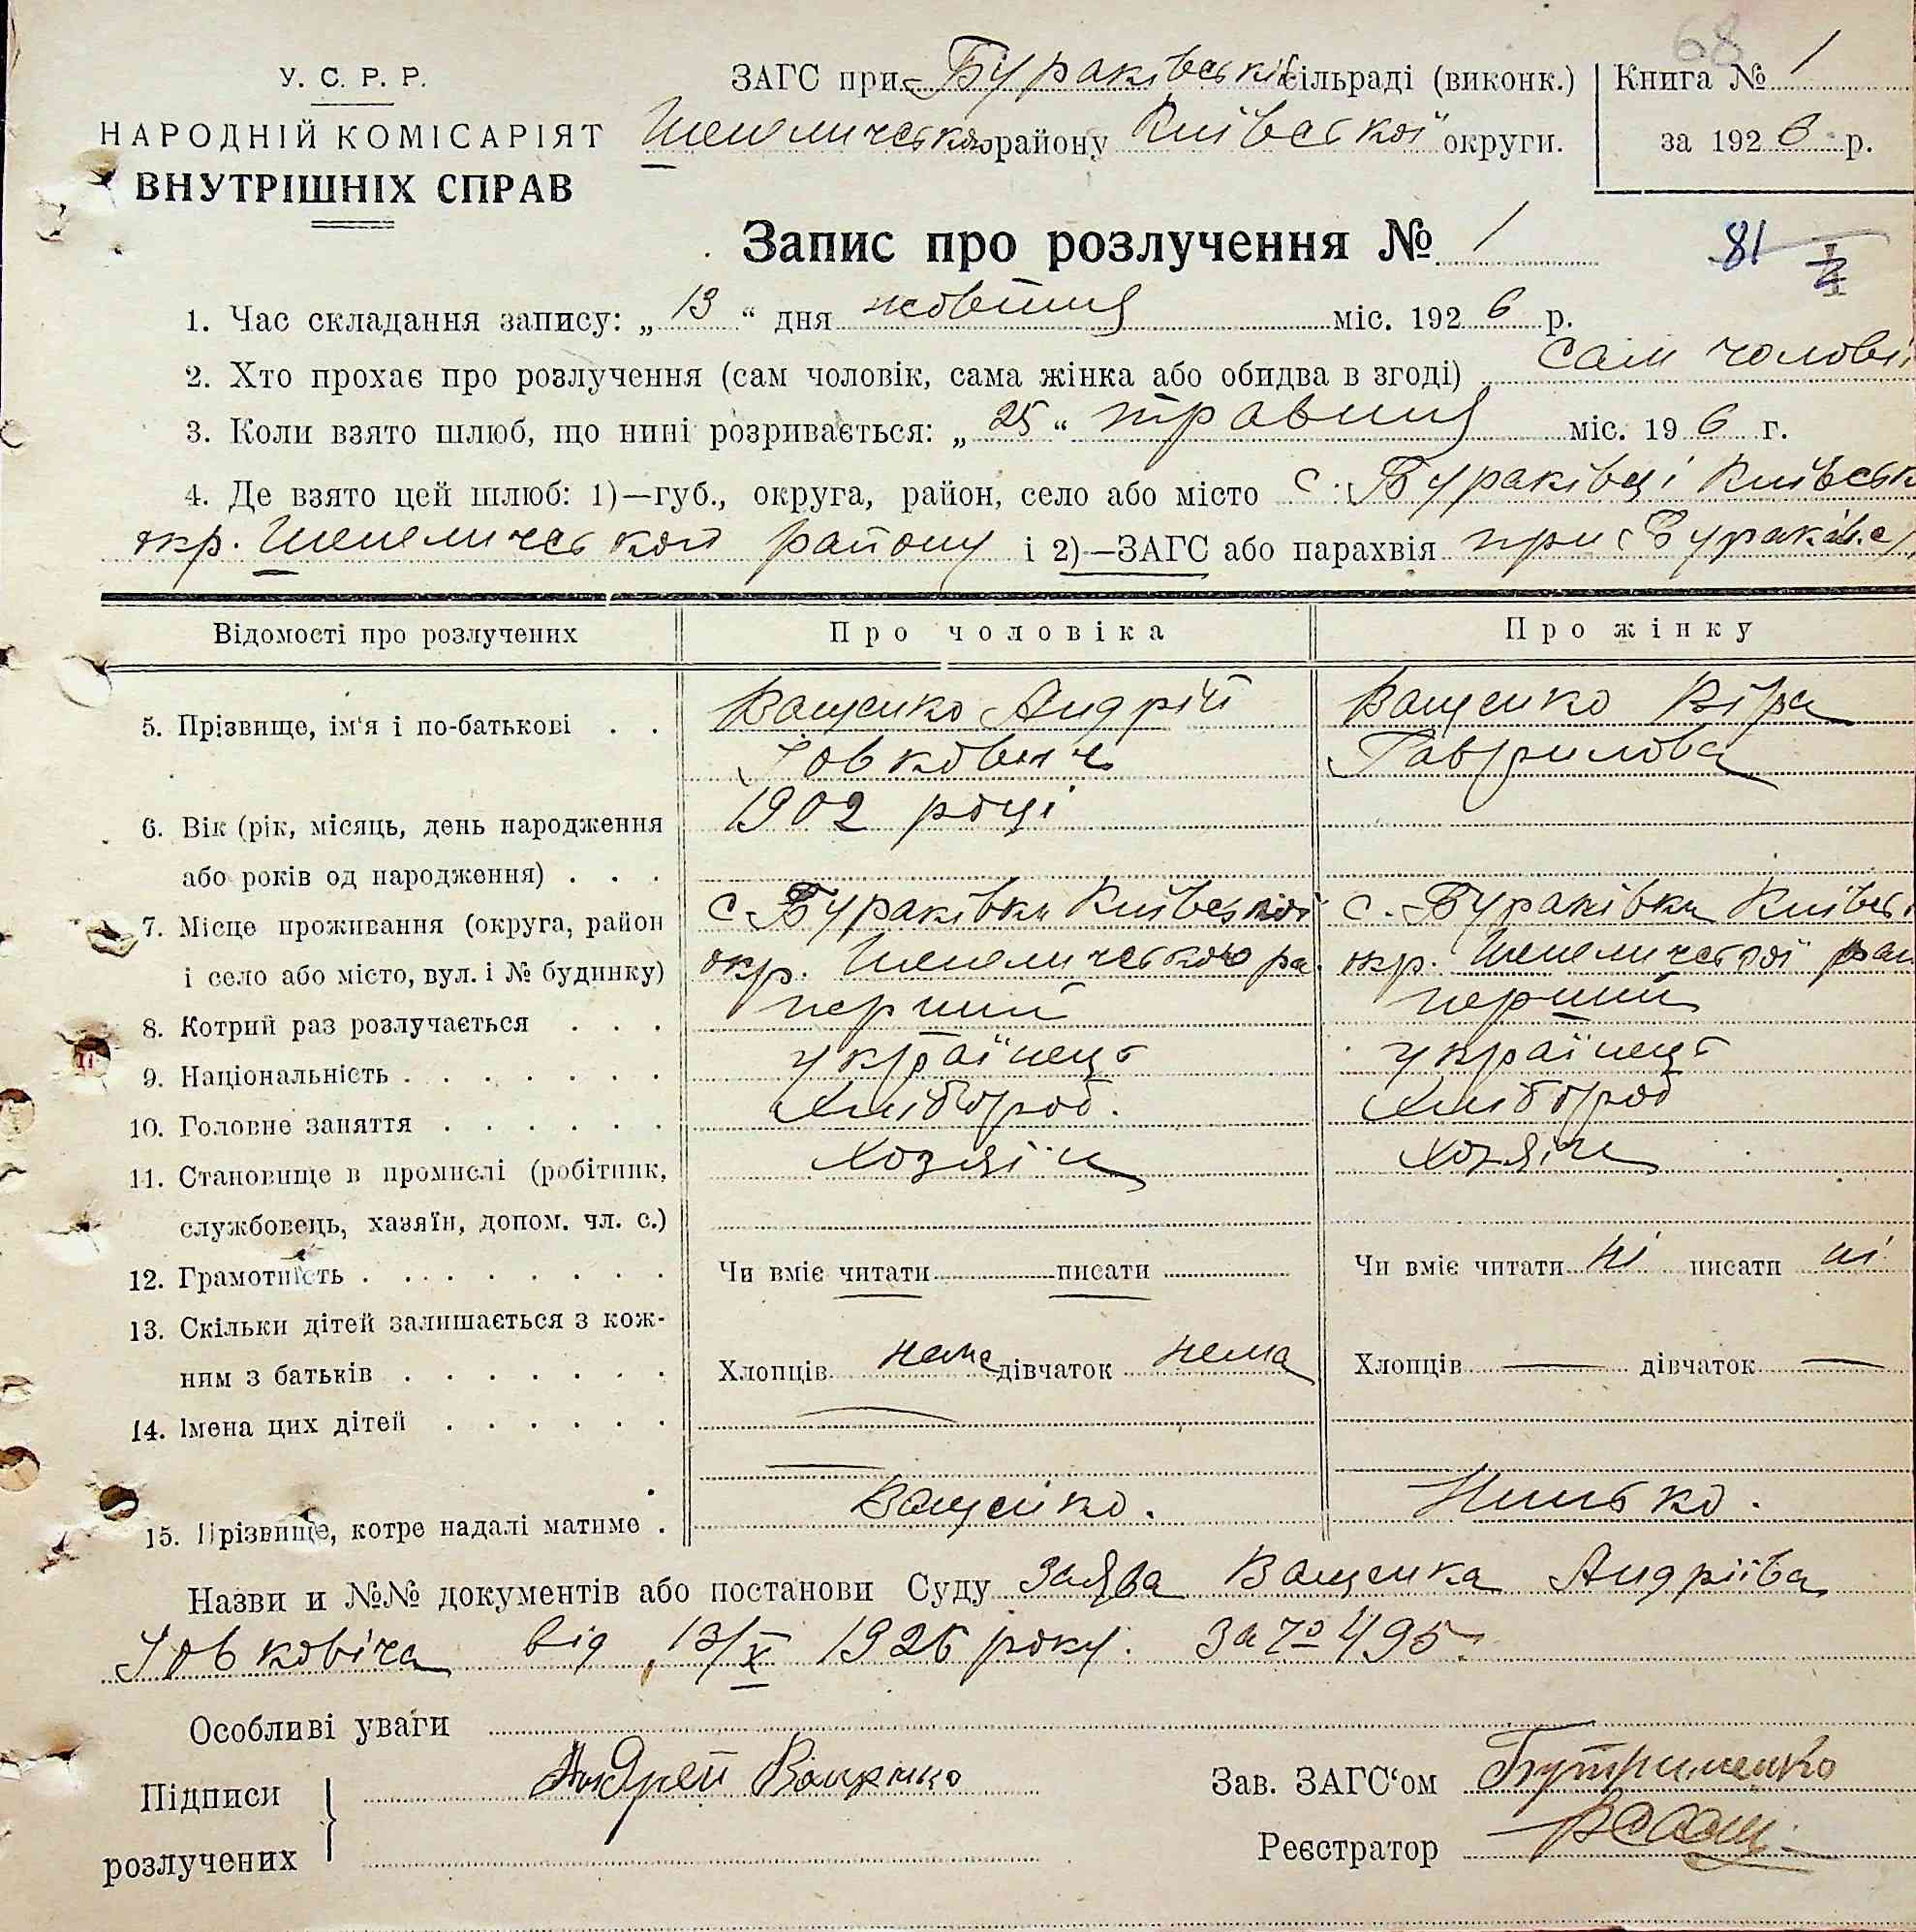 68
У. С. Р. Р.
НАРОДНІЙ КОМІСАРІЯТ
ВНУТРІШНІХ СПРАВ
ЗАГС при Бураківській сільраді (виконк.)
Шепеличського району Київської округи.
Книга № 1
за 1926 р.
Запис про розлучення № 1
81
1. Час складання запису: „13“ дня жовтня міс. 1926 р.
2. Хто прохає про розлучення (сам чоловік, сама жінка або обидва в згоді) сам чолові
3. Коли взято шлюб, що нині розривається: „25“ травня міс. 196 г.
4. Де взято цей шлюб: 1)—губ., округа, район, село або місто с. Бураківці Київськ
окр. Шепеличської району і 2)—ЗАГС або парахвія при Бураків. с/
Відомості про розлучених Про чоловіка Про жінку
5. Прізвище, ім‘я і по-батькові . . Ващенко Андрій Ващенко Віра
Іовкович Гаврилова
6. Вік (рік, місяць, день народження 1902 році
або років од народження) . . .
7. Місце проживання (округа, район с. Бураківки Київської с. Бураківки Київсь
і село або місто, вул. і № будинку) окр. Шепеличського ра. окр. Шепеличської рай
8. Котрий раз розлучається . . . перший перший
9. Національність . . . . . . . українець українець
10. Головне заняття . . . . . . Хлібороб. Хлібороб
11. Становище в промислі (робітник, хозяїн хозяїн
службовець, хазяїн, допом. чл. с.)
12. Грамотність . . . . . . . . Чи вміє читати писати Чи вміє читати ні писати ні
13. Скільки дітей залишається з кож-
ним з батьків . . . . . . . Хлопців нема дівчаток нема Хлопців — дівчаток —
14. Імена цих дітей . . . . . . —
—
15. Прізвище, котре надалі матиме . Ващенко. Нинько.
Назви и №№ документів або постанови Суду Заява Ващенка Андріїва
Іовковіча від 13/X 1926 року. За № 495.
Особливі уваги
Підписи
розлучених
Андрей Ващенко
Зав. ЗАГС‘ом Бутрименко
Реєстратор